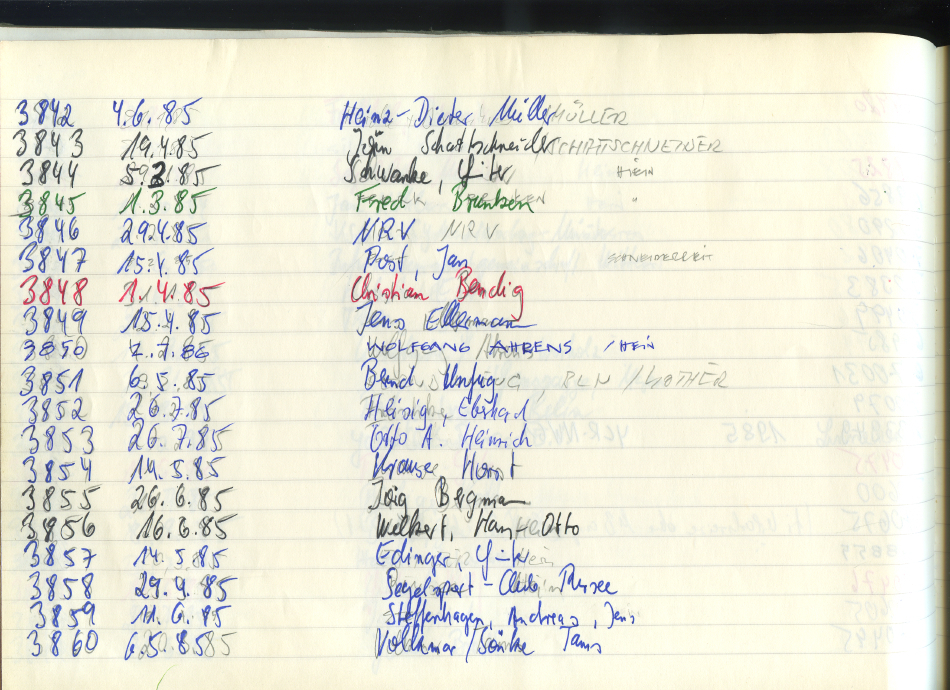 3842 4.6.85 Heinz-Dieter Müller MÜLLER
3843 19.4.85 Schattschneider SCHATTSCHNEIDER
3844 85 Schwanke, HIEIN
3845 1.3.85 Fred Brunken
3846 29.4.85 NRV NRV
3847 15.4.85 Post, Jan
3848 1.4.85 Christian Bendig
3849 15.4.85 Jens Ellermann
3850 WOLFGANG AHRENS /HEIN
3851 6.5.85 Bernd Unfug BLN /LOTHER
3852 26.7.85 Eberhard
3853 26.7.85 Otto A. Heinrich
3854 19.5.85 Krause Horst
3855 26.6.85 Jörg Bergmann
3856 16.6.85 Welkert, Hans-Otto
3857 14.5.85 Edinger,
3858 29.4.85
3859 11.6.85 Steffenhagen, Andreas, Jens
3860 85 Volkmar / Sönke Tams